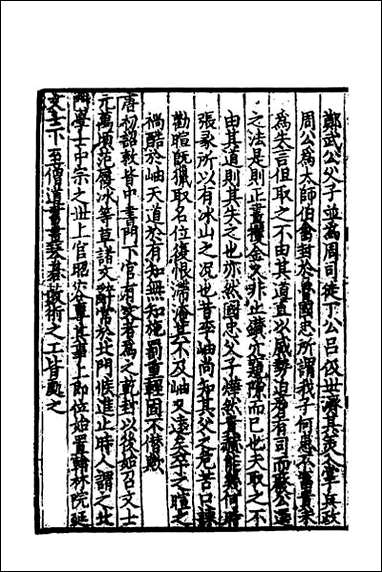 鄭武公父子並為周司徒丁公呂伋世濟其美
周公為大師伯禽封於魯國忠所謂我子何患不富貴未
為失言但取之不由其道直以威勢迫者有司而
之法是則正晝攫金又非止鑽穴隙而已也夫取之不
由其道則其失之也亦然國忠父子燁然貴能幾何時
張彖所以有冰山之况也昔平岫尚知其父之危苦口諫
勸暄既獵取名位復恨滯淹其不及岫又遠矣卒之暄之
禍酷於岫天道於有知無知施罰重輕固不僣歟
唐初詔敕皆中書門下官有文者為之乾封以後始召文士
元萬頃范履冰等草諸文辭常於北門候進止時人謂之北
門學士中宗之世上官昭容專其事上即位始置翰林院延
文士下至僧道書畫琴棊數術之工皆處之